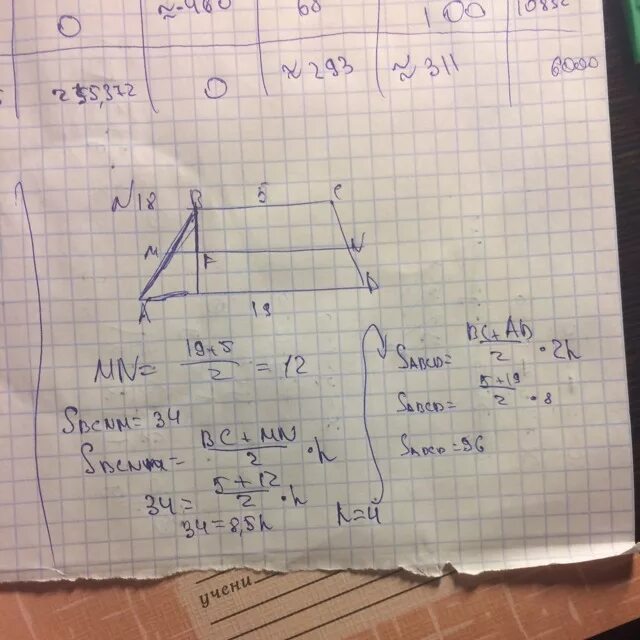 0 ≈-460 60 100
0 ≈293 ≈311 6000
N18 B 5 C
M F N
A 19 D
MN= 19+5/2 = 12
SBCNM= 34
SBCNM= BC+MN/2 · h
34= 5+12/2 · h
34=8,5h h=4
SABCD= BC+AD/2 · 2h
SABCD= 5+19/2 · 8
SABCD=96
учени